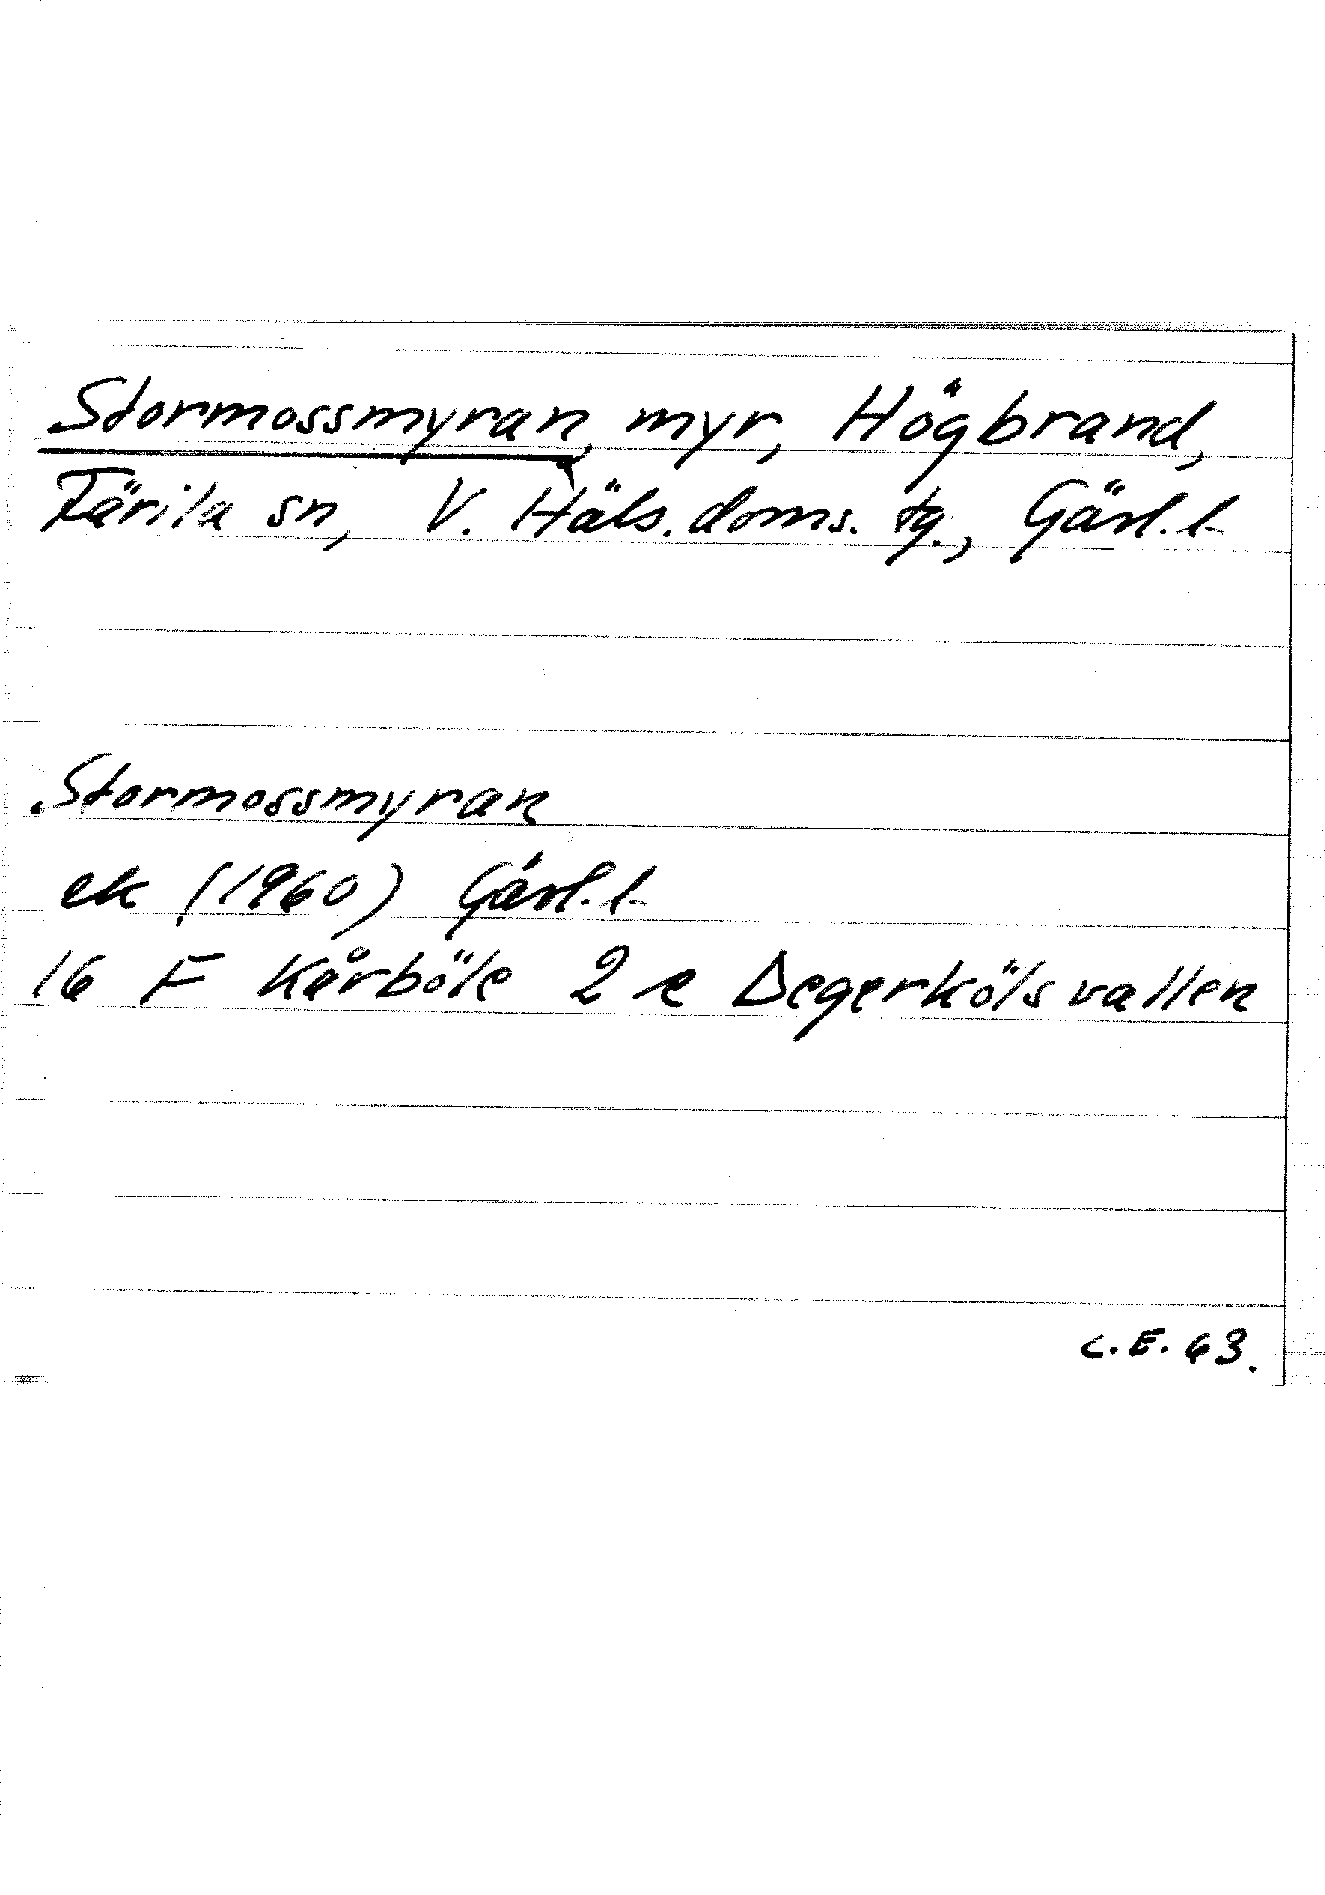 Stormossmyran, myr, Högbrand,
Färila sn, V. Häls. doms. tg., Gävl. l.
Stormossmyran
ek (1960) Gävl. l.
16 F Kårböle 2 e Degerkölsvallen
C. E. 63.